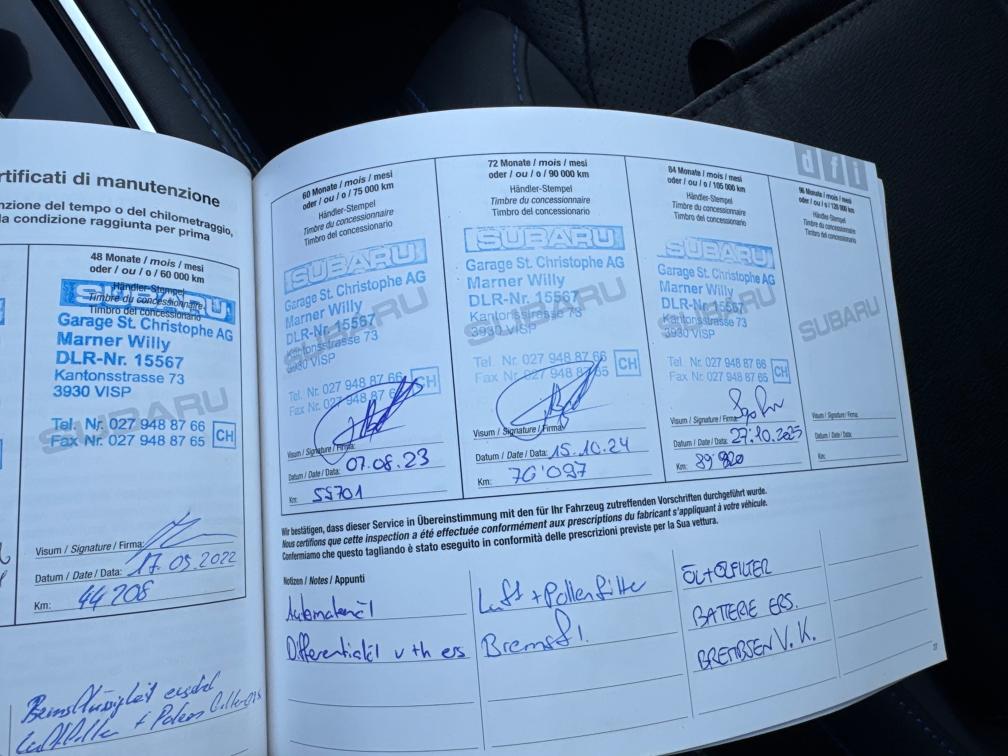 rtificati di manutenzione
nzione del tempo o del chilometraggio,
la condizione raggiunta per prima
48 Monate / mois / mesi
oder / ou / o / 60 000 km
Händler-Stempel
Timbre du concessionnaire
Timbro del concessionario
SUBARU
Garage St. Christophe AG
Marner Willy
DLR-Nr. 15567
Kantonsstrasse 73
3930 VISP
SUBARU
Tel. Nr. 027 948 87 66
Fax Nr. 027 948 87 65
CH
Visum / Signature / Firma:
Datum / Date / Data: 17.05.2022
Km: 44208
Bremsflüssigkeit
Luftfilter + Pollen
60 Monate / mois / mesi
oder / ou / o / 75 000 km
Händler-Stempel
Timbre du concessionnaire
Timbro del concessionario
SUBARU
Garage St. Christophe AG
Marner Willy
DLR-Nr. 15567
Kantonsstrasse 73
3930 VISP
SUBARU
Tel. Nr. 027 948 87 66
Fax Nr. 027 948 87 65
CH
Visum / Signature / Firma:
Datum / Date / Data: 07.08.23
Km: 55701
72 Monate / mois / mesi
oder / ou / o / 90 000 km
Händler-Stempel
Timbre du concessionnaire
Timbro del concessionario
SUBARU
Garage St. Christophe AG
Marner Willy
DLR-Nr. 15567
Kantonsstrasse 73
3930 VISP
SUBARU
Tel. Nr. 027 948 87 66
Fax Nr. 027 948 87 65
CH
Visum / Signature / Firma:
Datum / Date / Data: 15.10.24
Km: 70'097
84 Monate / mois / mesi
oder / ou / o / 105 000 km
Händler-Stempel
Timbre du concessionnaire
Timbro del concessionario
SUBARU
Garage St. Christophe AG
Marner Willy
DLR-Nr. 15567
Kantonsstrasse 73
3930 VISP
SUBARU
Tel. Nr. 027 948 87 66
Fax Nr. 027 948 87 65
CH
Visum / Signature / Firma:
Datum / Date / Data: 27.10.2025
Km: 89 920
d f i
96 Monate / mois / mesi
oder / ou / o / 120 000 km
Händler-Stempel
Timbre du concessionnaire
Timbro del concessionario
SUBARU
Visum / Signature / Firma:
Datum / Date / Data:
Km:
Wir bestätigen, dass dieser Service in Übereinstimmung mit den für Ihr Fahrzeug zutreffenden Vorschriften durchgeführt wurde.
Nous certifions que cette inspection a été effectuée conformément aux prescriptions du fabricant s'appliquant à votre véhicule.
Confermiamo che questo tagliando è stato eseguito in conformità delle prescrizioni previste per la Sua vettura.
Notizen / Notes / Appunti
Automatenöl
Differentialöl v + h ers
Luft + Pollenfilter
Bremsfl.
ÖL + ÖLFILTER
BATTERIE ERS.
BREMSEN V. K.